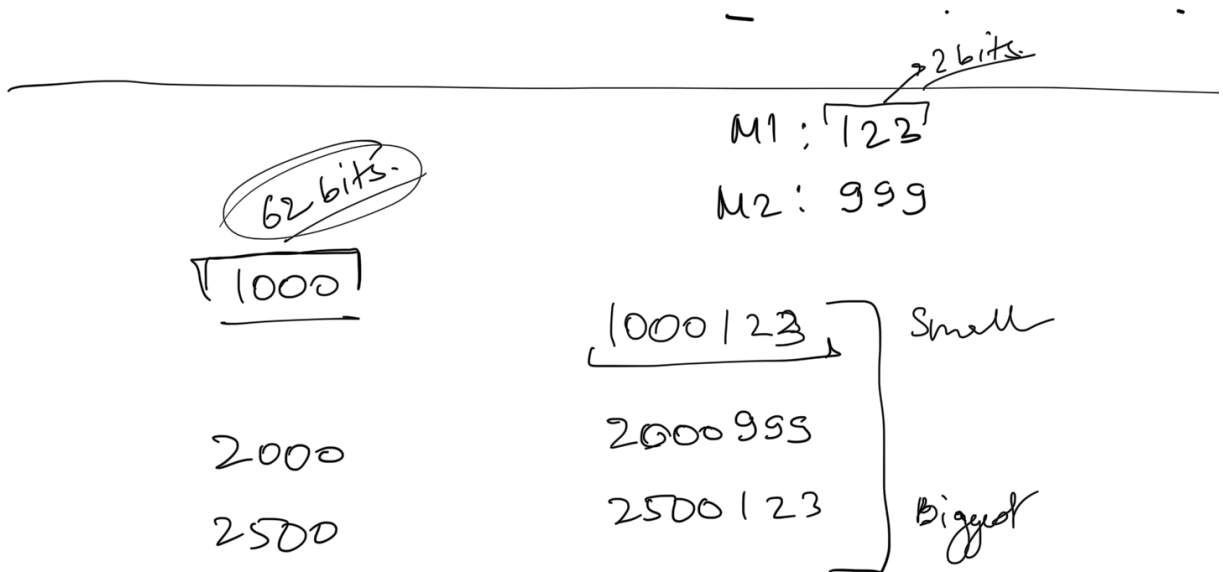 2 bits.
M1 : 123
62 bits.
M2 : 999
1000
1000123 Small
2000 2000999
2500 2500123 Biggest